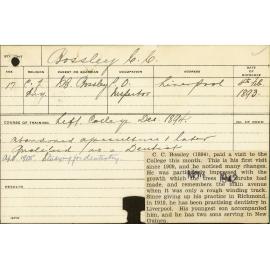 Bossley C. C.
AGE RELIGION PARENT OR GUARDIAN OCCUPATION ADDRESS DATE OF ENTRANCE
17 C. of Eng. Bossley Inspector Liverpool Feb 1893
COURSE OF TRAINING Left College Dec 1894.
abandoned agriculture & later
qualified as a Dentist
Apl. 1905. Studying for dentistry.
C. C. Bossley (1894), paid a visit to the
College this month. This is his first visit
since 1909, and he noticed many changes.
He was particularly impressed with the
growth which the trees and shrubs had
made, and remembers the main avenue
when it was only a rough winding track.
Since giving up his practice in Richmond,
in 1919, he has been practising dentistry in
Liverpool. His youngest son accompanied
him, and he has two sons serving in New
Guinea.